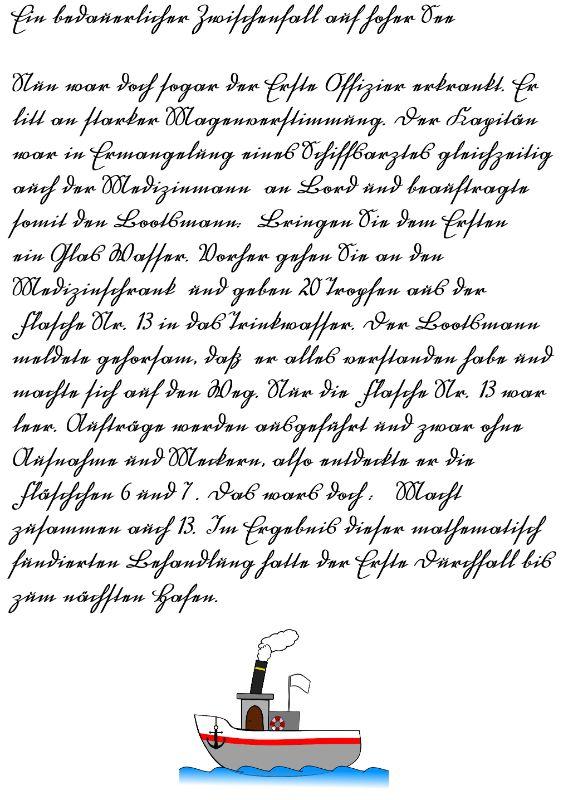 Ein bedauerlicher Zwischenfall auf hoher See
Nun war doch sogar der Erste Offizier erkrankt. Er
litt an starker Magenverstimmung. Der Kapitän
war in Ermangelung eines Schiffsarztes gleichzeitig
auch der Medizinmann an Bord und beauftragte
somit den Bootsmann: Bringen Sie dem Ersten
ein Glas Wasser. Vorher gehen Sie an den
Medizinschrank und geben 20 Tropfen aus der
Flasche Nr. 13 in das Trinkwasser. Der Bootsmann
meldete gehorsam, daß er alles verstanden habe und
machte sich auf den Weg. Nur die Flasche Nr. 13 war
leer. Aufträge werden ausgeführt und zwar ohne
Aufnahme und Meckern, also entdeckte er die
Fläschchen 6 und 7. Das wars doch: Macht
zusammen auch 13. Im Ergebnis dieser mathematisch
fundierten Behandlung hatte der Erste Durchfall bis
zum nächsten Hafen.